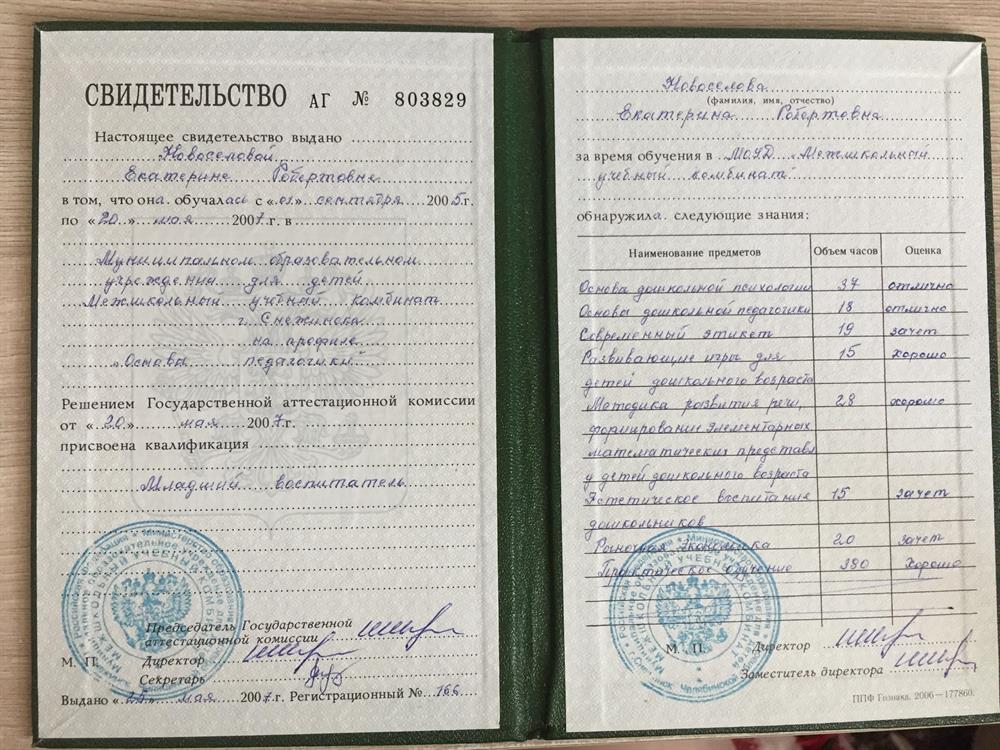 СВИДЕТЕЛЬСТВО АГ № 803829
Настоящее свидетельство выдано
Новоселовой
Екатерине Робертовне
в том, что она обучалась с «01» сентября 2005г.
по «20» мая 2007.г. в
Муниципальном образовательном
учреждении для детей
Межшкольный учебный комбинат
г. Снежинска
на профиле
"Основы педагогики"
Решением Государственной аттестационной комиссии
от «20» мая 2007.г.
присвоена квалификация
Младший воспитатель
Председатель Государственной
аттестационной комиссии
М. П. Директор
Секретарь
Выдано «25» мая 2007.г. Регистрационный № 166
Новоселова
(фамилия, имя, отчество)
Екатерина Робертовна
за время обучения в МОУД "Межшкольный
учебный комбинат"
обнаружила следующие знания:
Наименование предметов Объем часов Оценка
Основы дошкольной психологии 37 отлично
Основы дошкольной педагогики 18 отлично
Современный этикет 19 зачет
Развивающие игры для 15 хорошо
детей дошкольного возраста
Методика развития речи, 28 хорошо
формирование элементарных
математических представл
у детей дошкольного возраста
Эстетическое воспитание 15 зачет
дошкольников
Рыночная экономика 20 зачет
Практическое обучение 380 Хорошо
М. П. Директор
Заместитель директора
ППФ Гознака. 2006—177860.